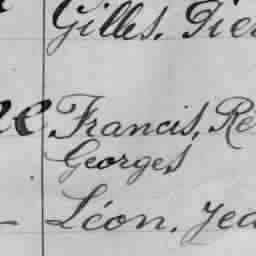 Gilles. Pie
Francis, Re
Georges
Léon. Jea